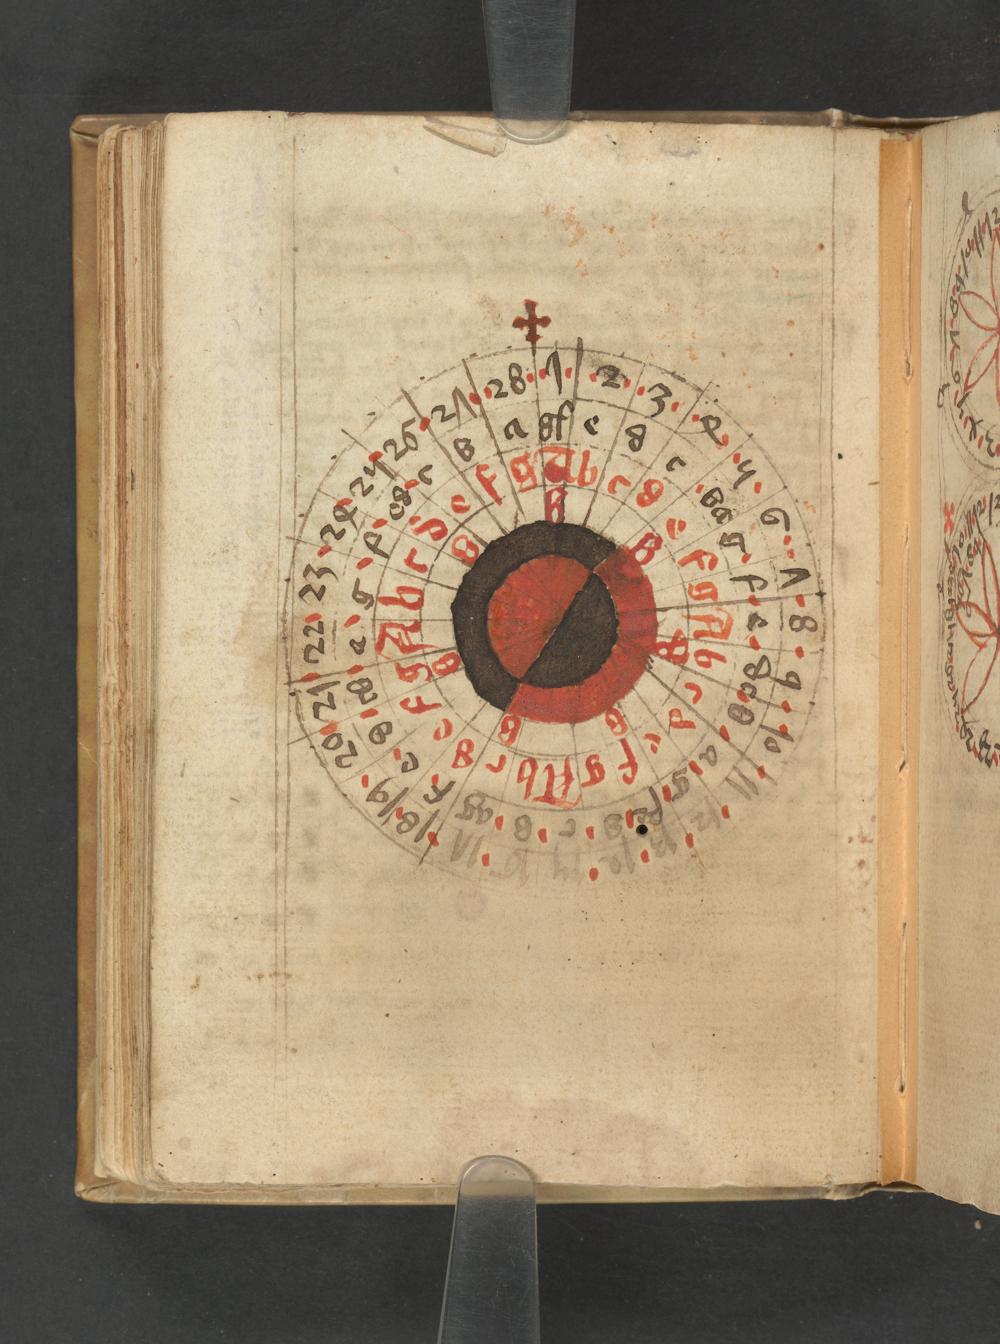 1 2 3 4 5 6 7 8 9 10 11 12 13 14 15 16 17 18 19 20 21 22 23 24 25 26 27 28
gf e d c ba g f e dc b a g fe d c b ag f e d cb a g f ed c b a
A b c d e f g A b c d e f g A b c d e f g A b c d e f g
B B B B B B B